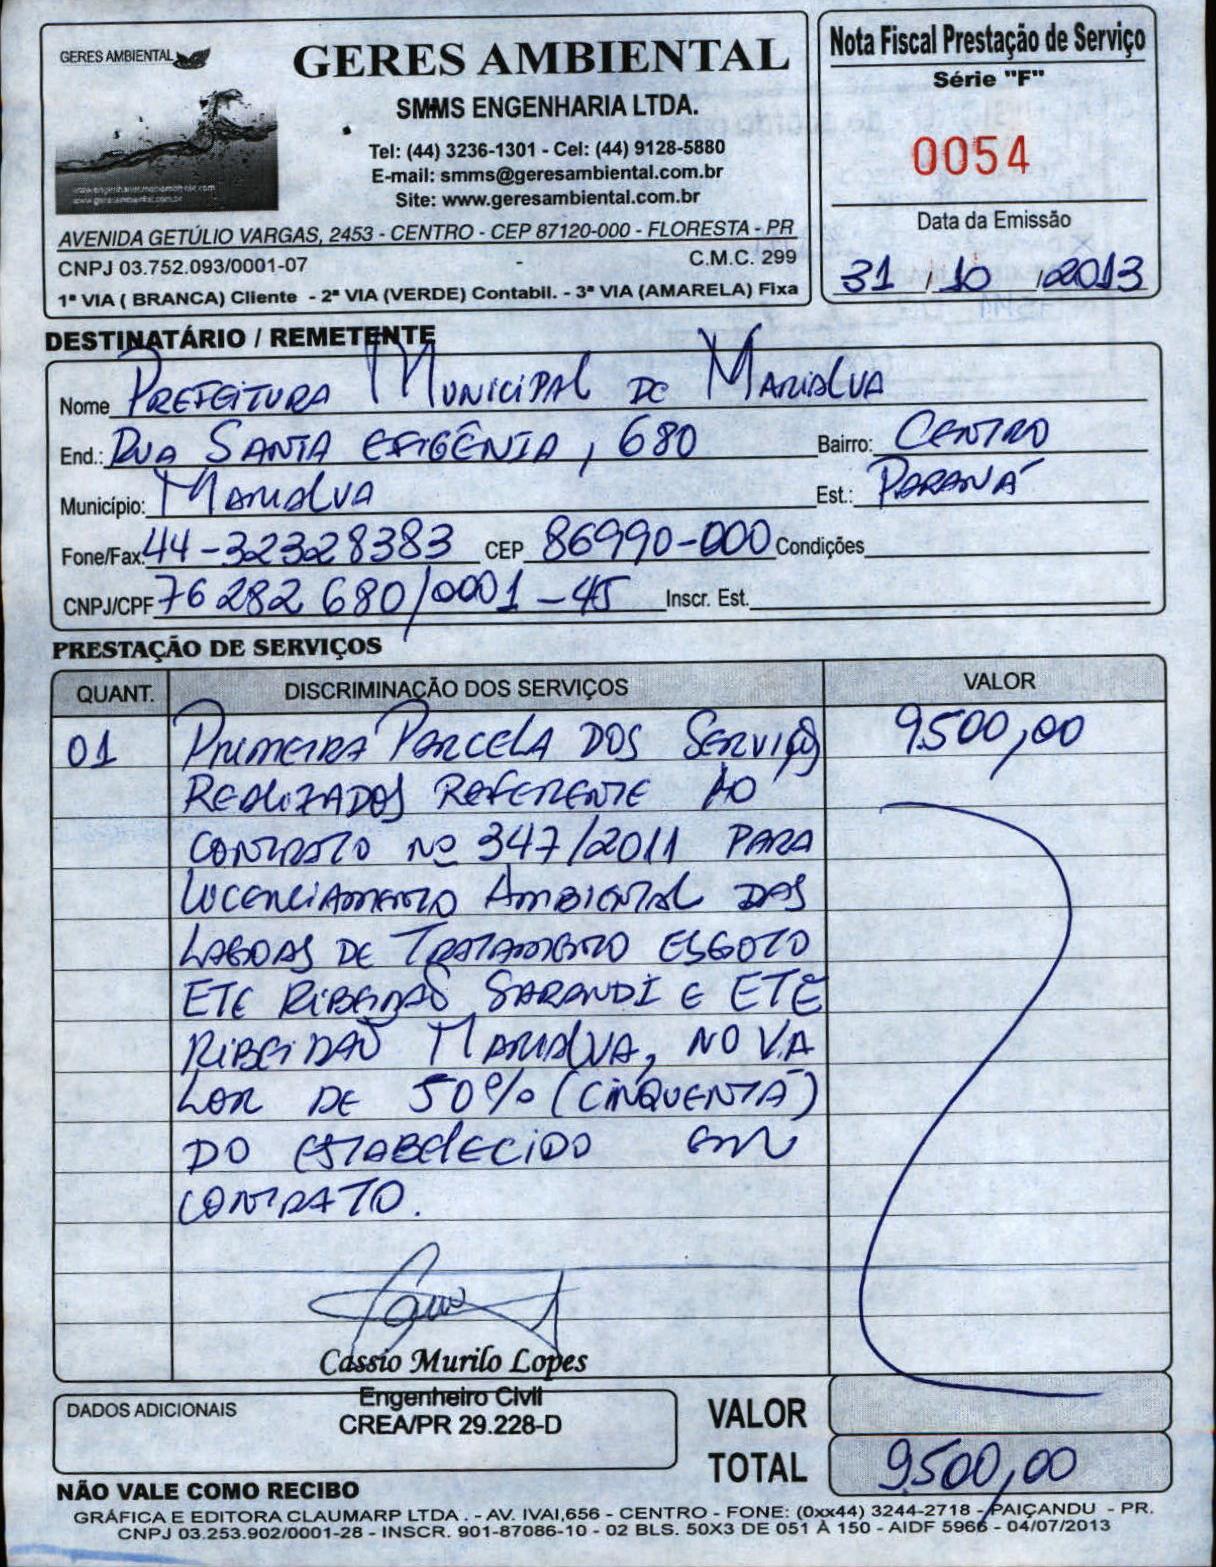 GERES AMBIENTAL
www.geresambiental.com.br
GERES AMBIENTAL
SMMS ENGENHARIA LTDA.
Tel: (44) 3236-1301 - Cel: (44) 9128-5880
E-mail: smms@geresambiental.com.br
Site: www.geresambiental.com.br
AVENIDA GETÚLIO VARGAS, 2453 - CENTRO - CEP 87120-000 - FLORESTA - PR
CNPJ 03.752.093/0001-07 - C.M.C. 299
1ª VIA ( BRANCA) Cliente - 2ª VIA (VERDE) Contabil. - 3ª VIA (AMARELA) Fixa
Nota Fiscal Prestação de Serviço
Série "F"
0054
Data da Emissão
31 / 10 / 2013
DESTINATÁRIO / REMETENTE
Nome PREFEITURA MUNICIPAL DE MARIALVA
End.: RUA SANTA EFIGÊNIA, 680 Bairro: CENTRO
Município: MARIALVA Est.: PARANÁ
Fone/Fax: 44-32328383 CEP 86990-000 Condições
CNPJ/CPF 76 282 680/0001-45 Inscr. Est.
PRESTAÇÃO DE SERVIÇOS
QUANT. DISCRIMINAÇÃO DOS SERVIÇOS VALOR
01 PRIMEIRA PARCELA DOS SERVIÇOS 9.500,00
REALIZADOS REFERENTE AO
CONTRATO Nº 347/2011 PARA
LICENCIAMENTO AMBIENTAL DAS
LAGOAS DE TRATAMENTO ESGOTO
ETE RIBEIRÃO SARANDI E ETE
RIBEIRÃO MARIALVA, NO VA
LOR DE 50% (CINQUENTA)
DO ESTABELECIDO EM
CONTRATO.
Cassio Murilo Lopes
Engenheiro Civil
CREA/PR 29.228-D
DADOS ADICIONAIS
VALOR
TOTAL 9.500,00
NÃO VALE COMO RECIBO
GRÁFICA E EDITORA CLAUMARP LTDA . - AV. IVAI,656 - CENTRO - FONE: (0xx44) 3244-2718 - PAIÇANDU - PR.
CNPJ 03.253.902/0001-28 - INSCR. 901-87086-10 - 02 BLS. 50X3 DE 051 À 150 - AIDF 5966 - 04/07/2013